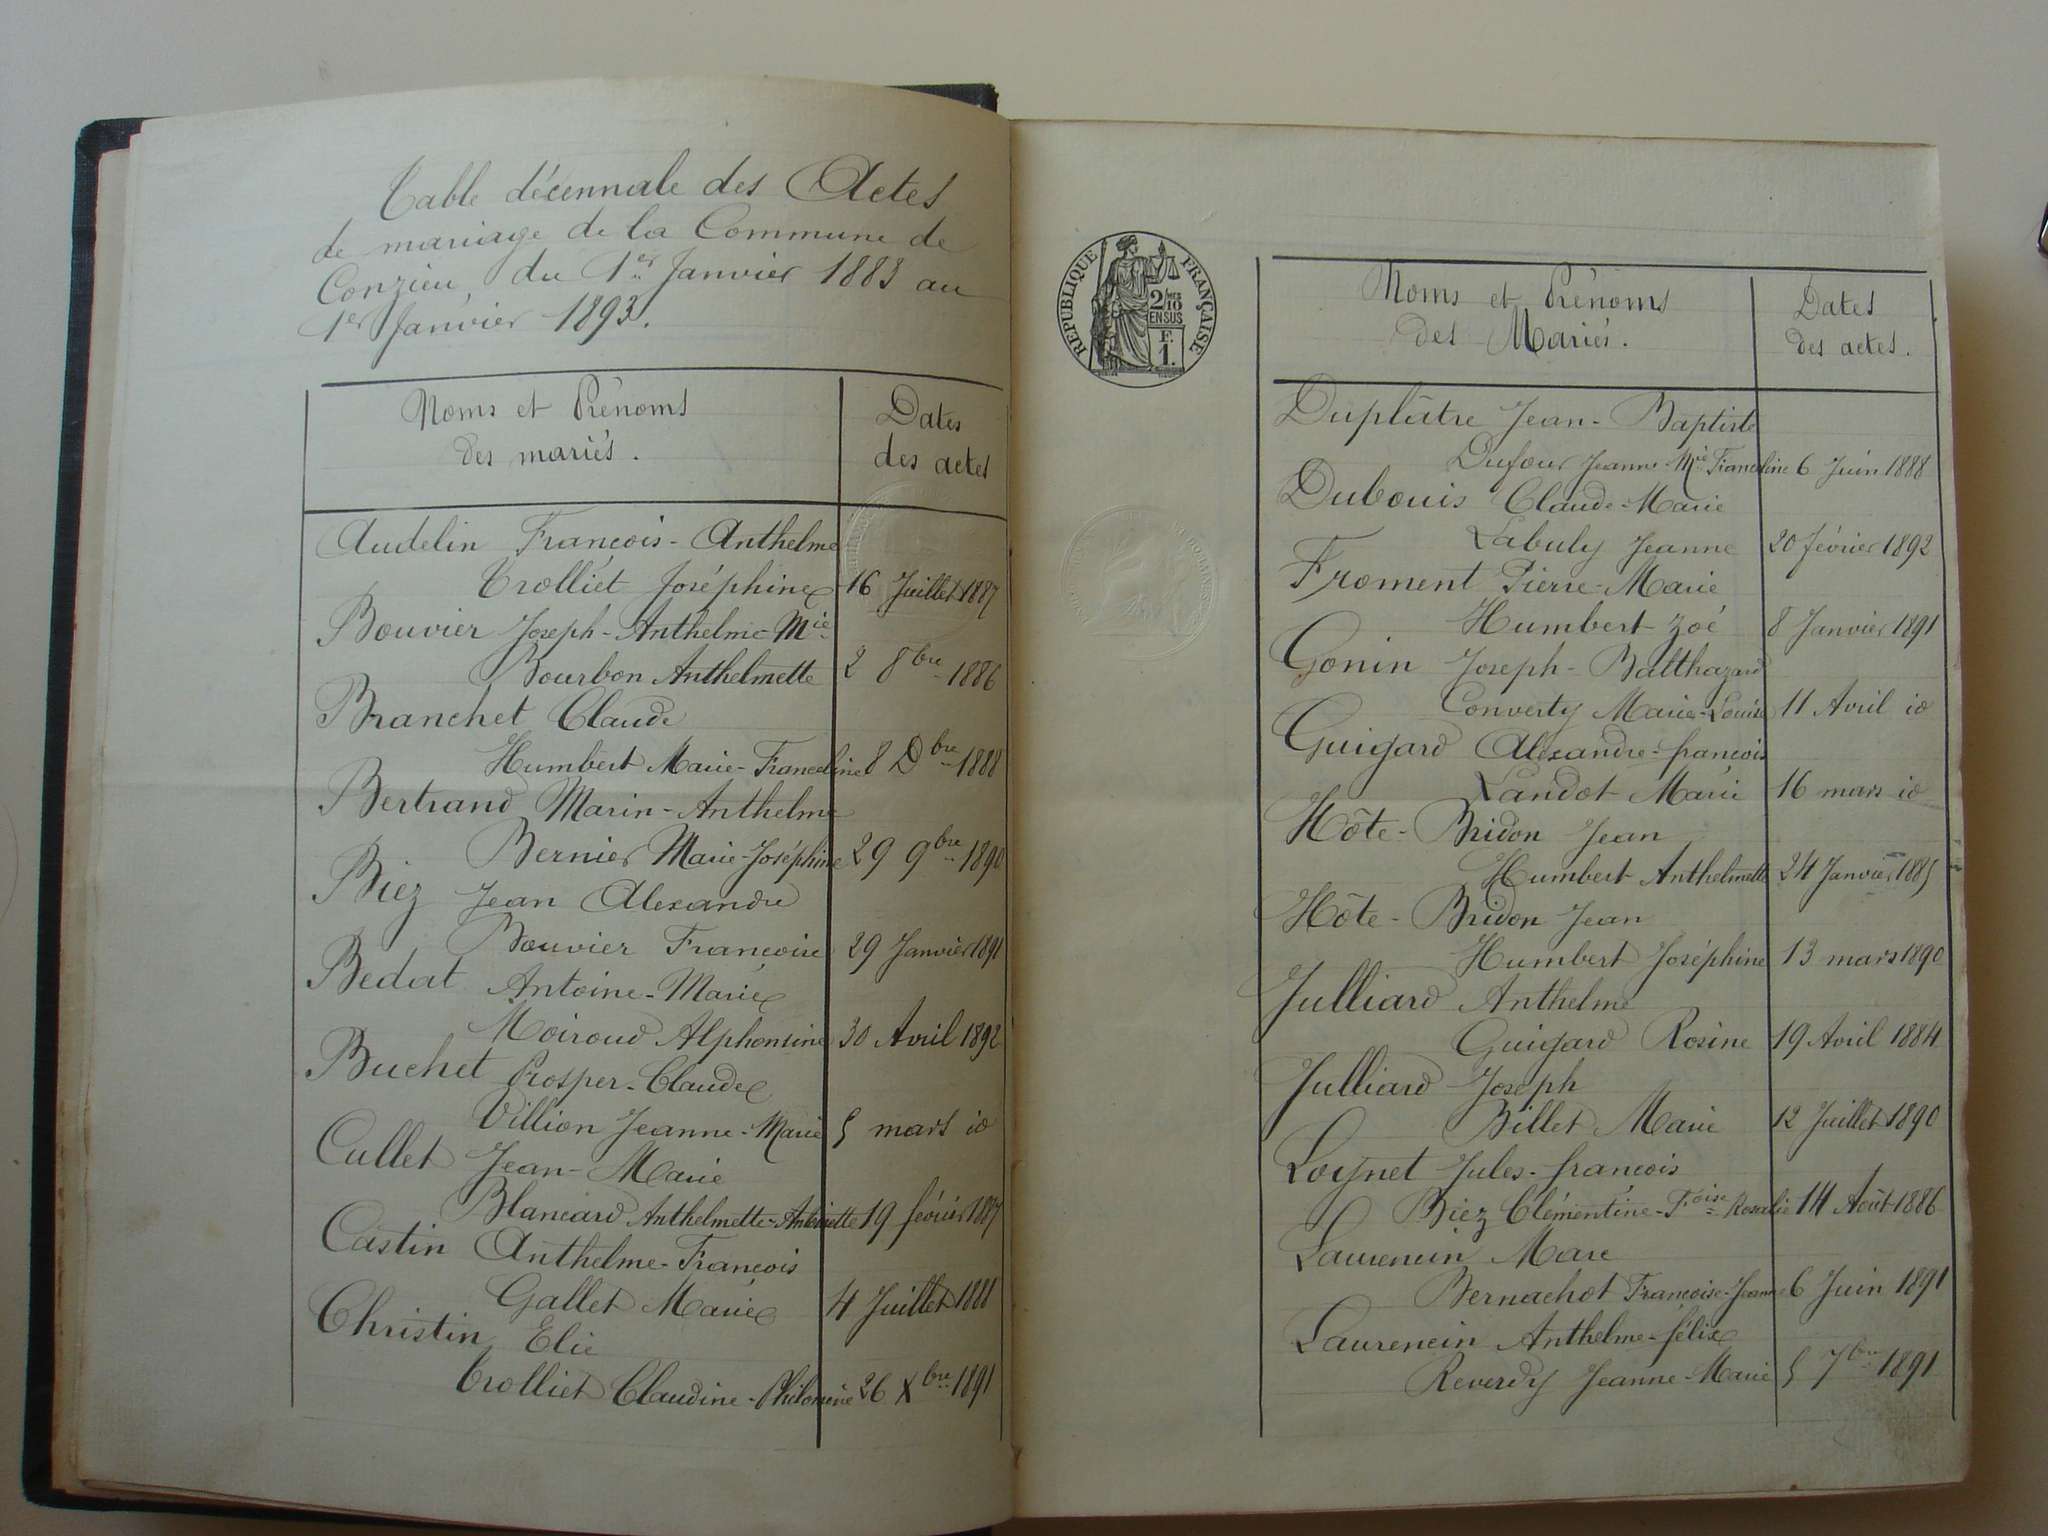 Table décennale des Actes
de mariage de la Commune de
Conzieu, du 1er Janvier 1883 au
1er Janvier 1893.
Noms et Prénoms
des mariés.
Dates
des actes
Audelin François-Anthelme
Trolliet Joséphine 16 Juillet 1887
Bouvier Joseph-Anthelme-Mie
Bourbon Anthelmette 2 8bre 1886
Branchet Claude
Humbert Marie-Franceline 8 Dbre 1888
Bertrand Marin-Anthelme
Bernier Marie-Joséphine 29 9bre 1890
Biez Jean Alexandre
Bouvier Françoise 29 Janvier 1891
Bedat Antoine-Marie
Moiroud Alphonsine 30 Avril 1892
Buchet Prosper-Claude
Villion Jeanne-Marie 5 mars id
Cullet Jean-Marie
Blancard Anthelmette-Antoinette 19 février 1887
Castin Anthelme-François
Gallet Marie 4 Juillet 1888
Christin Elie
Trolliet Claudine-Philomène 26 Xbre 1891
REPUBLIQUE FRANÇAISE
2/10MES
EN SUS
F.
1.
Noms et Prénoms
des Mariés.
Dates
des actes.
Duplâtre Jean-Baptiste
Dufour Jeanne-Mie Franceline 6 Juin 1888
Dubouis Claude-Marie
Labuly Jeanne 20 février 1892
Froment Pierre-Marie
Humbert Zoé 8 Janvier 1891
Gonin Joseph-Balthazard
Converty Marie-Louise 11 Avril id
Guigard Alexandre-françois
Landot Marie 16 mars id
Hôte-Bridon Jean
Humbert Anthelmette 24 Janvier 1885
Hôte-Bridon Jean
Humbert Joséphine 13 mars 1890
Julliard Anthelme
Guigard Rosine 19 Avril 1884
Julliard Joseph
Billet Marie 12 Juillet 1890
Loynet Jules-françois
Biez Clémentine-Froise-Rosalie 14 Août 1886
Laurencin Marc
Bernachot Françoise-Jeanne 6 Juin 1891
Laurencin Anthelme-félix
Reverdy Jeanne-Marie 5 7bre 1891